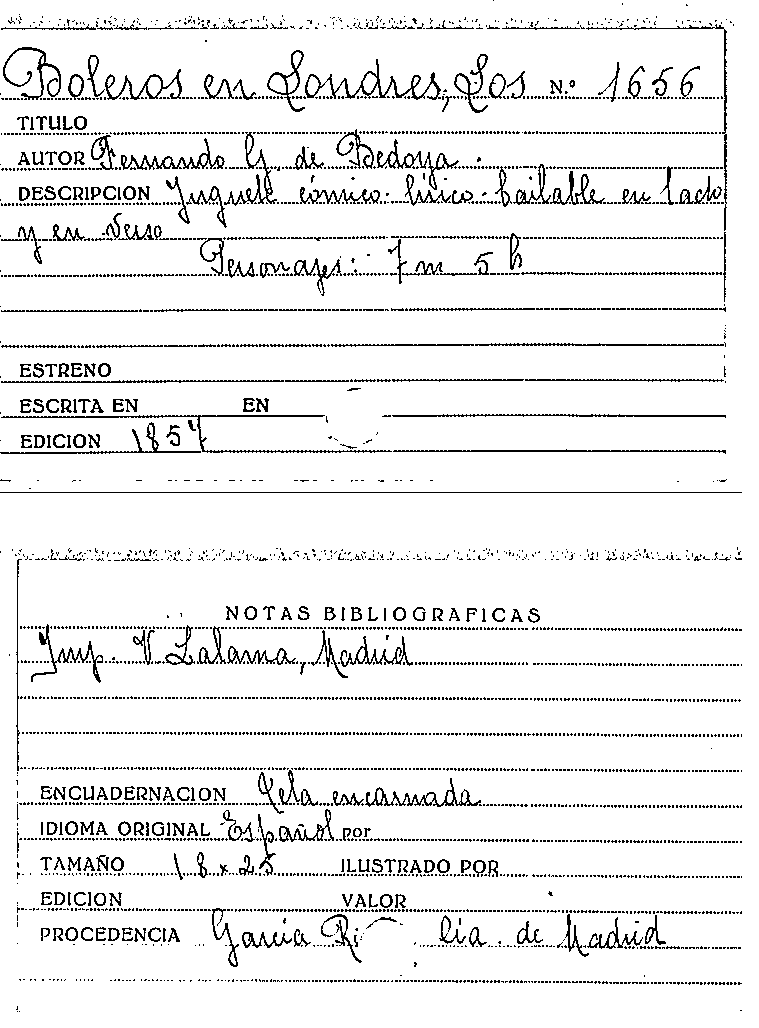 Boleros en Londres, Los Nº 1656
TITULO
AUTOR Fernando G. de Bedoya.
DESCRIPCION Juguete cómico-lírico-bailable en 1 acto
y en verso
Personajes: 7 m 5 h
ESTRENO
ESCRITA EN EN
EDICION 1857
NOTAS BIBLIOGRAFICAS
Imp. V. Lalama, Madrid
ENCUADERNACION Tela encarnada
IDIOMA ORIGINAL Español por
TAMAÑO 18 x 25 ILUSTRADO POR
EDICION VALOR
PROCEDENCIA García de Madrid